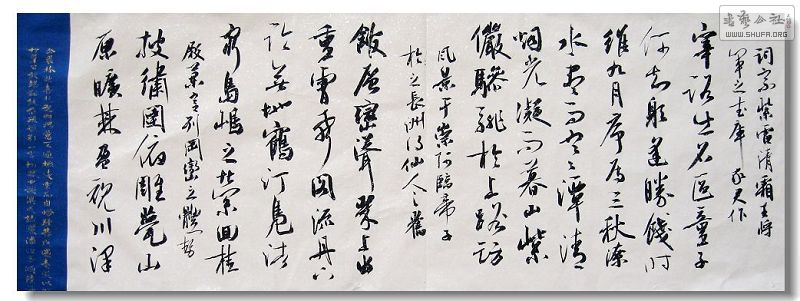 书艺公社
WWW.SHUFA.ORG
詞宗紫電清霜王將
軍之武庫家君作
宰路出名區童子
何知躬逢勝餞時
維九月序屬三秋潦
水盡而寒潭清
烟光凝而暮山紫
儼驂騑於上路訪
風景于崇阿臨帝子
於之長洲得仙人之舊
館層巒聳翠上出
重霄飛閣流丹下
臨無地鶴汀鳧渚
窮島嶼之縈回桂
殿蘭宮列岡巒之體勢
披繡闥俯雕甍山
原曠其盈視川澤